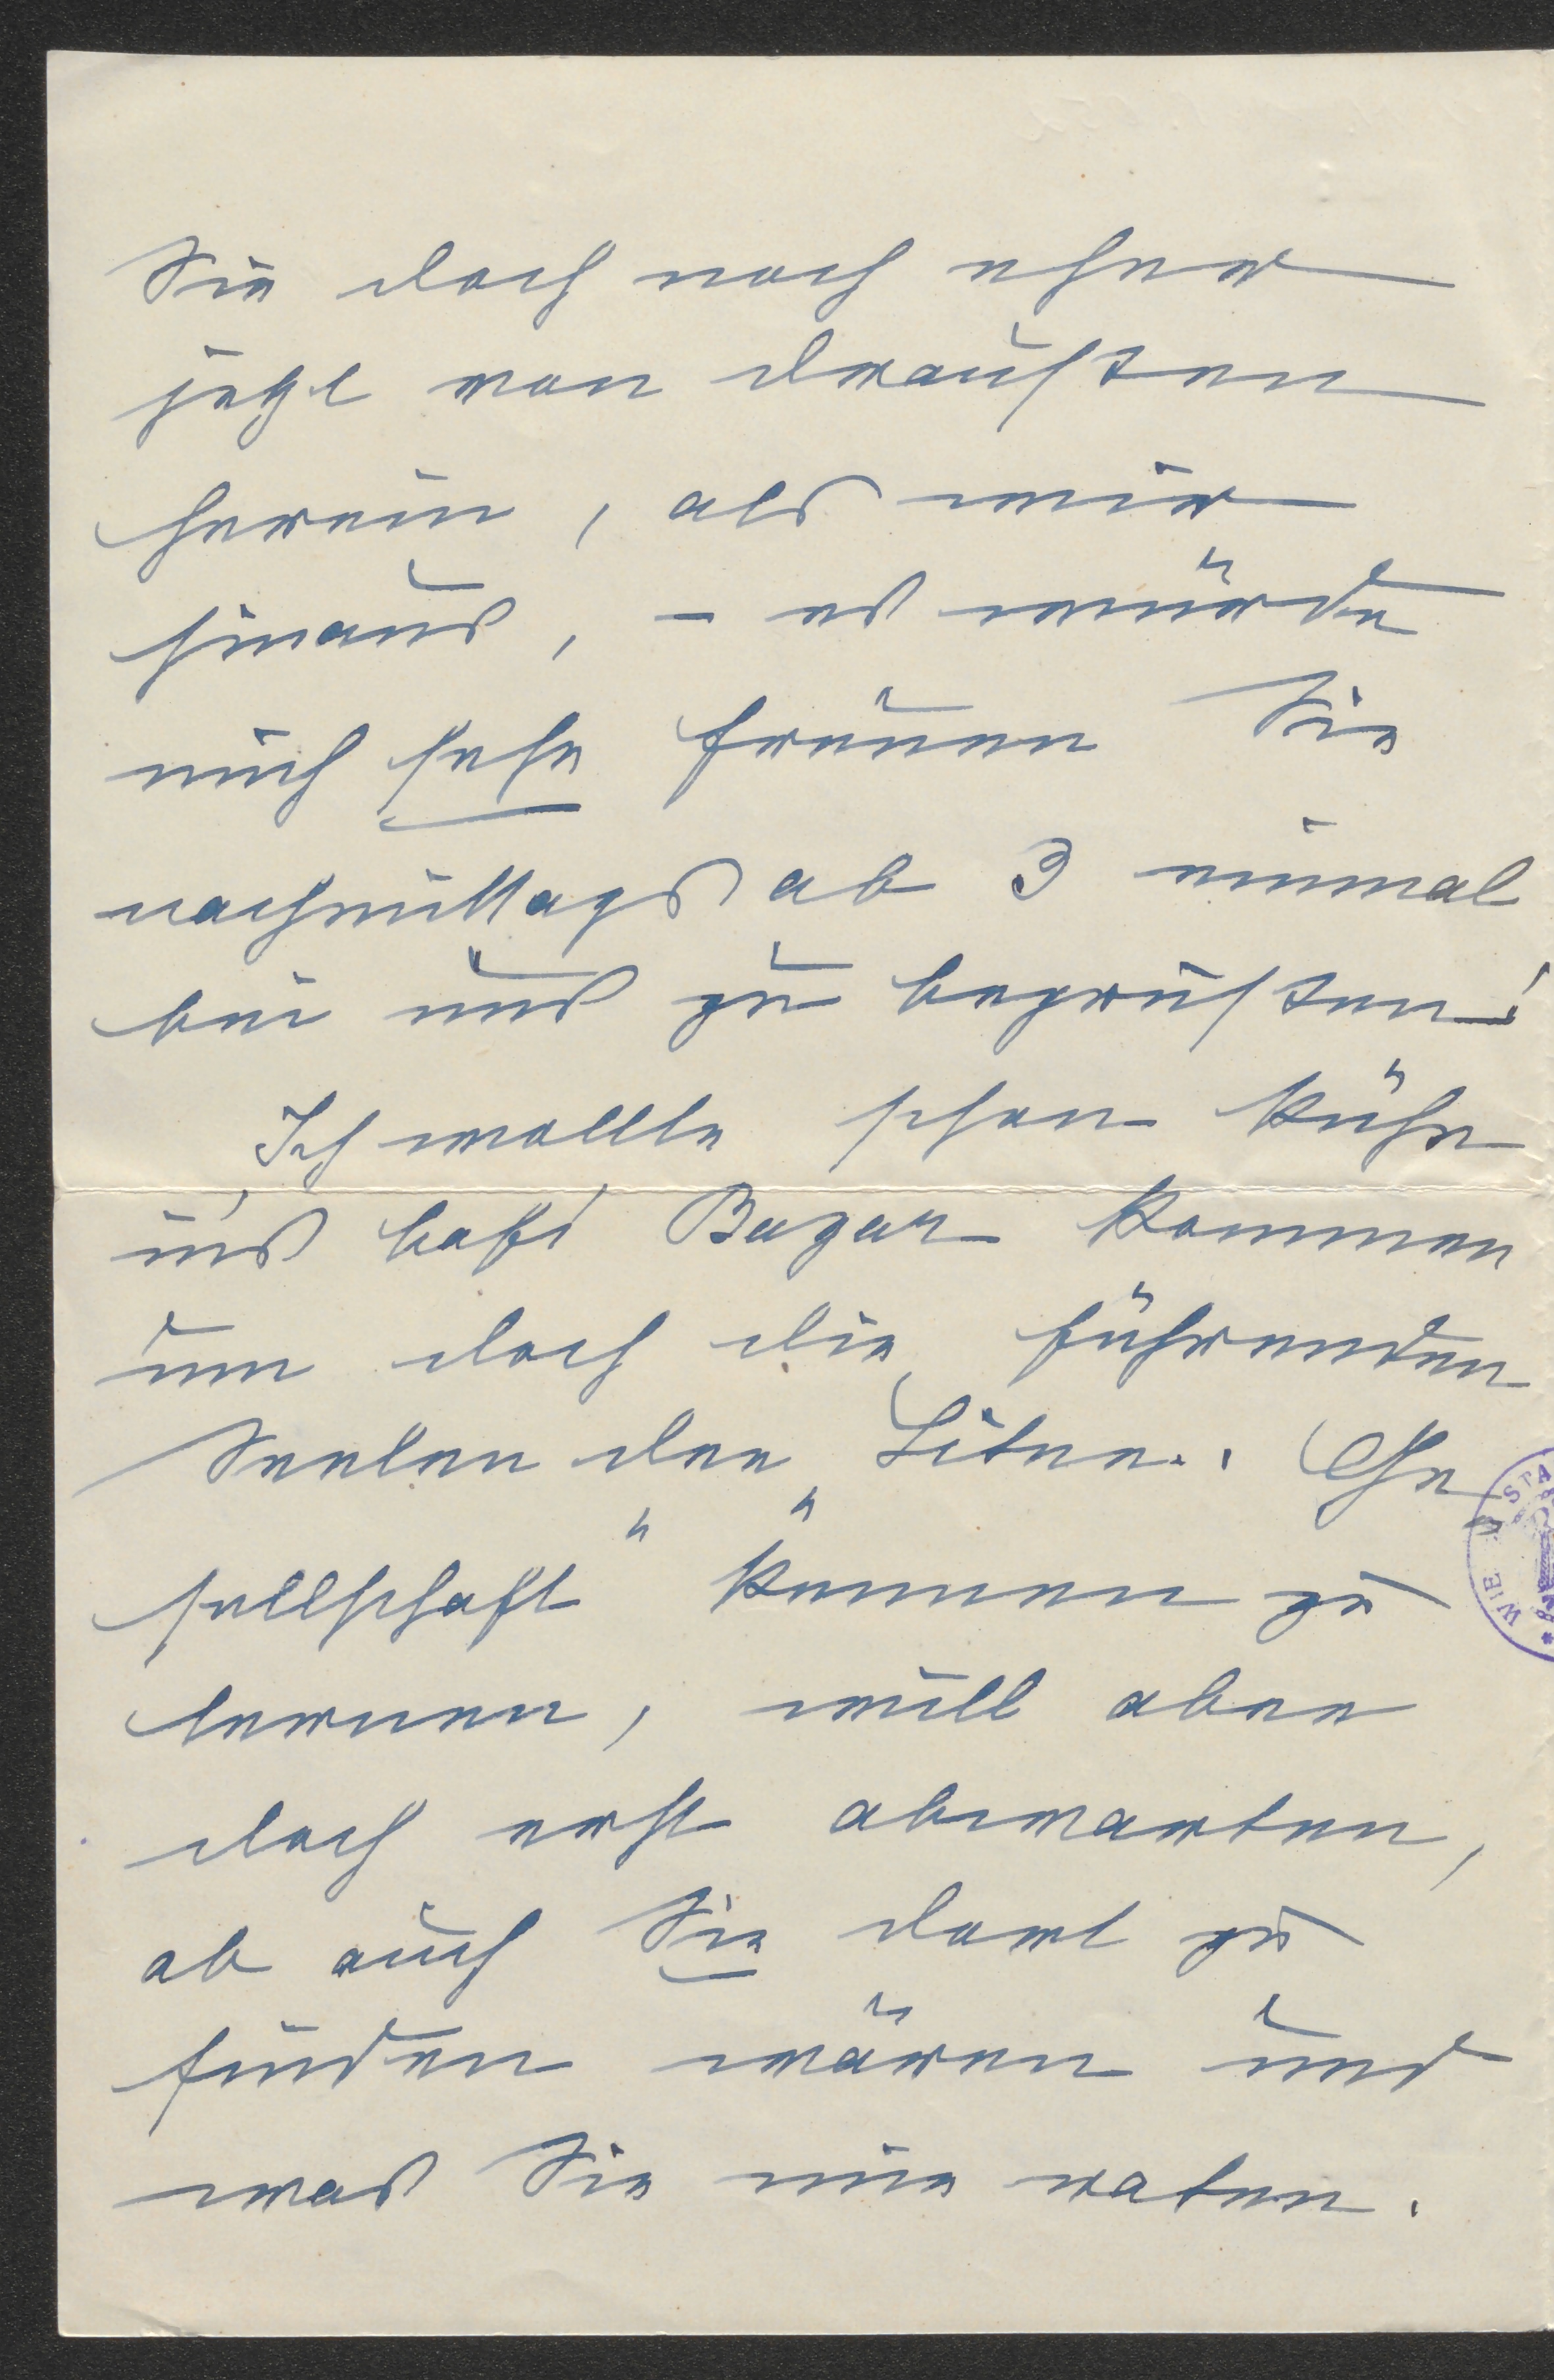 Sie doch noch eher
jetzt von draußen
herein, als wir
hinaus, – es würde
mich sehr freuen Sie
nachmittags ab 3 einmal
bei uns zu begrüßen!
Ich wollte schon kühn
ins Bazar kommen
um doch die führenden
Seelen der „Liter. Ge
sellschaft" kennen zu
lernen, will aber
doch erst abwarten,
ob auch Sie dort zu
finden wären und
was Sie mir raten.
WIE STA